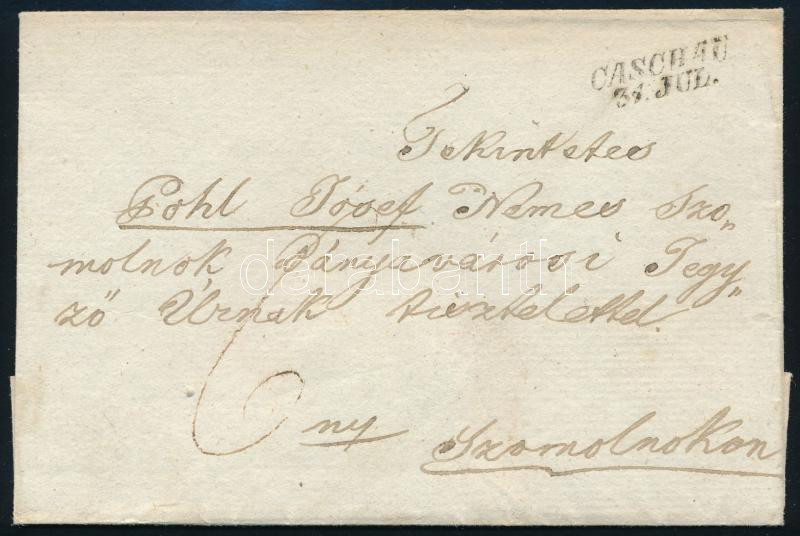 CASCHAU
31. JUL.
Tekintetes
Pohl Jósef Nemes Szo„
molnok Bányavárosi Jegy„
ző Úrnak tisztelettel.
6
ny
Szomolnokon
darabanth